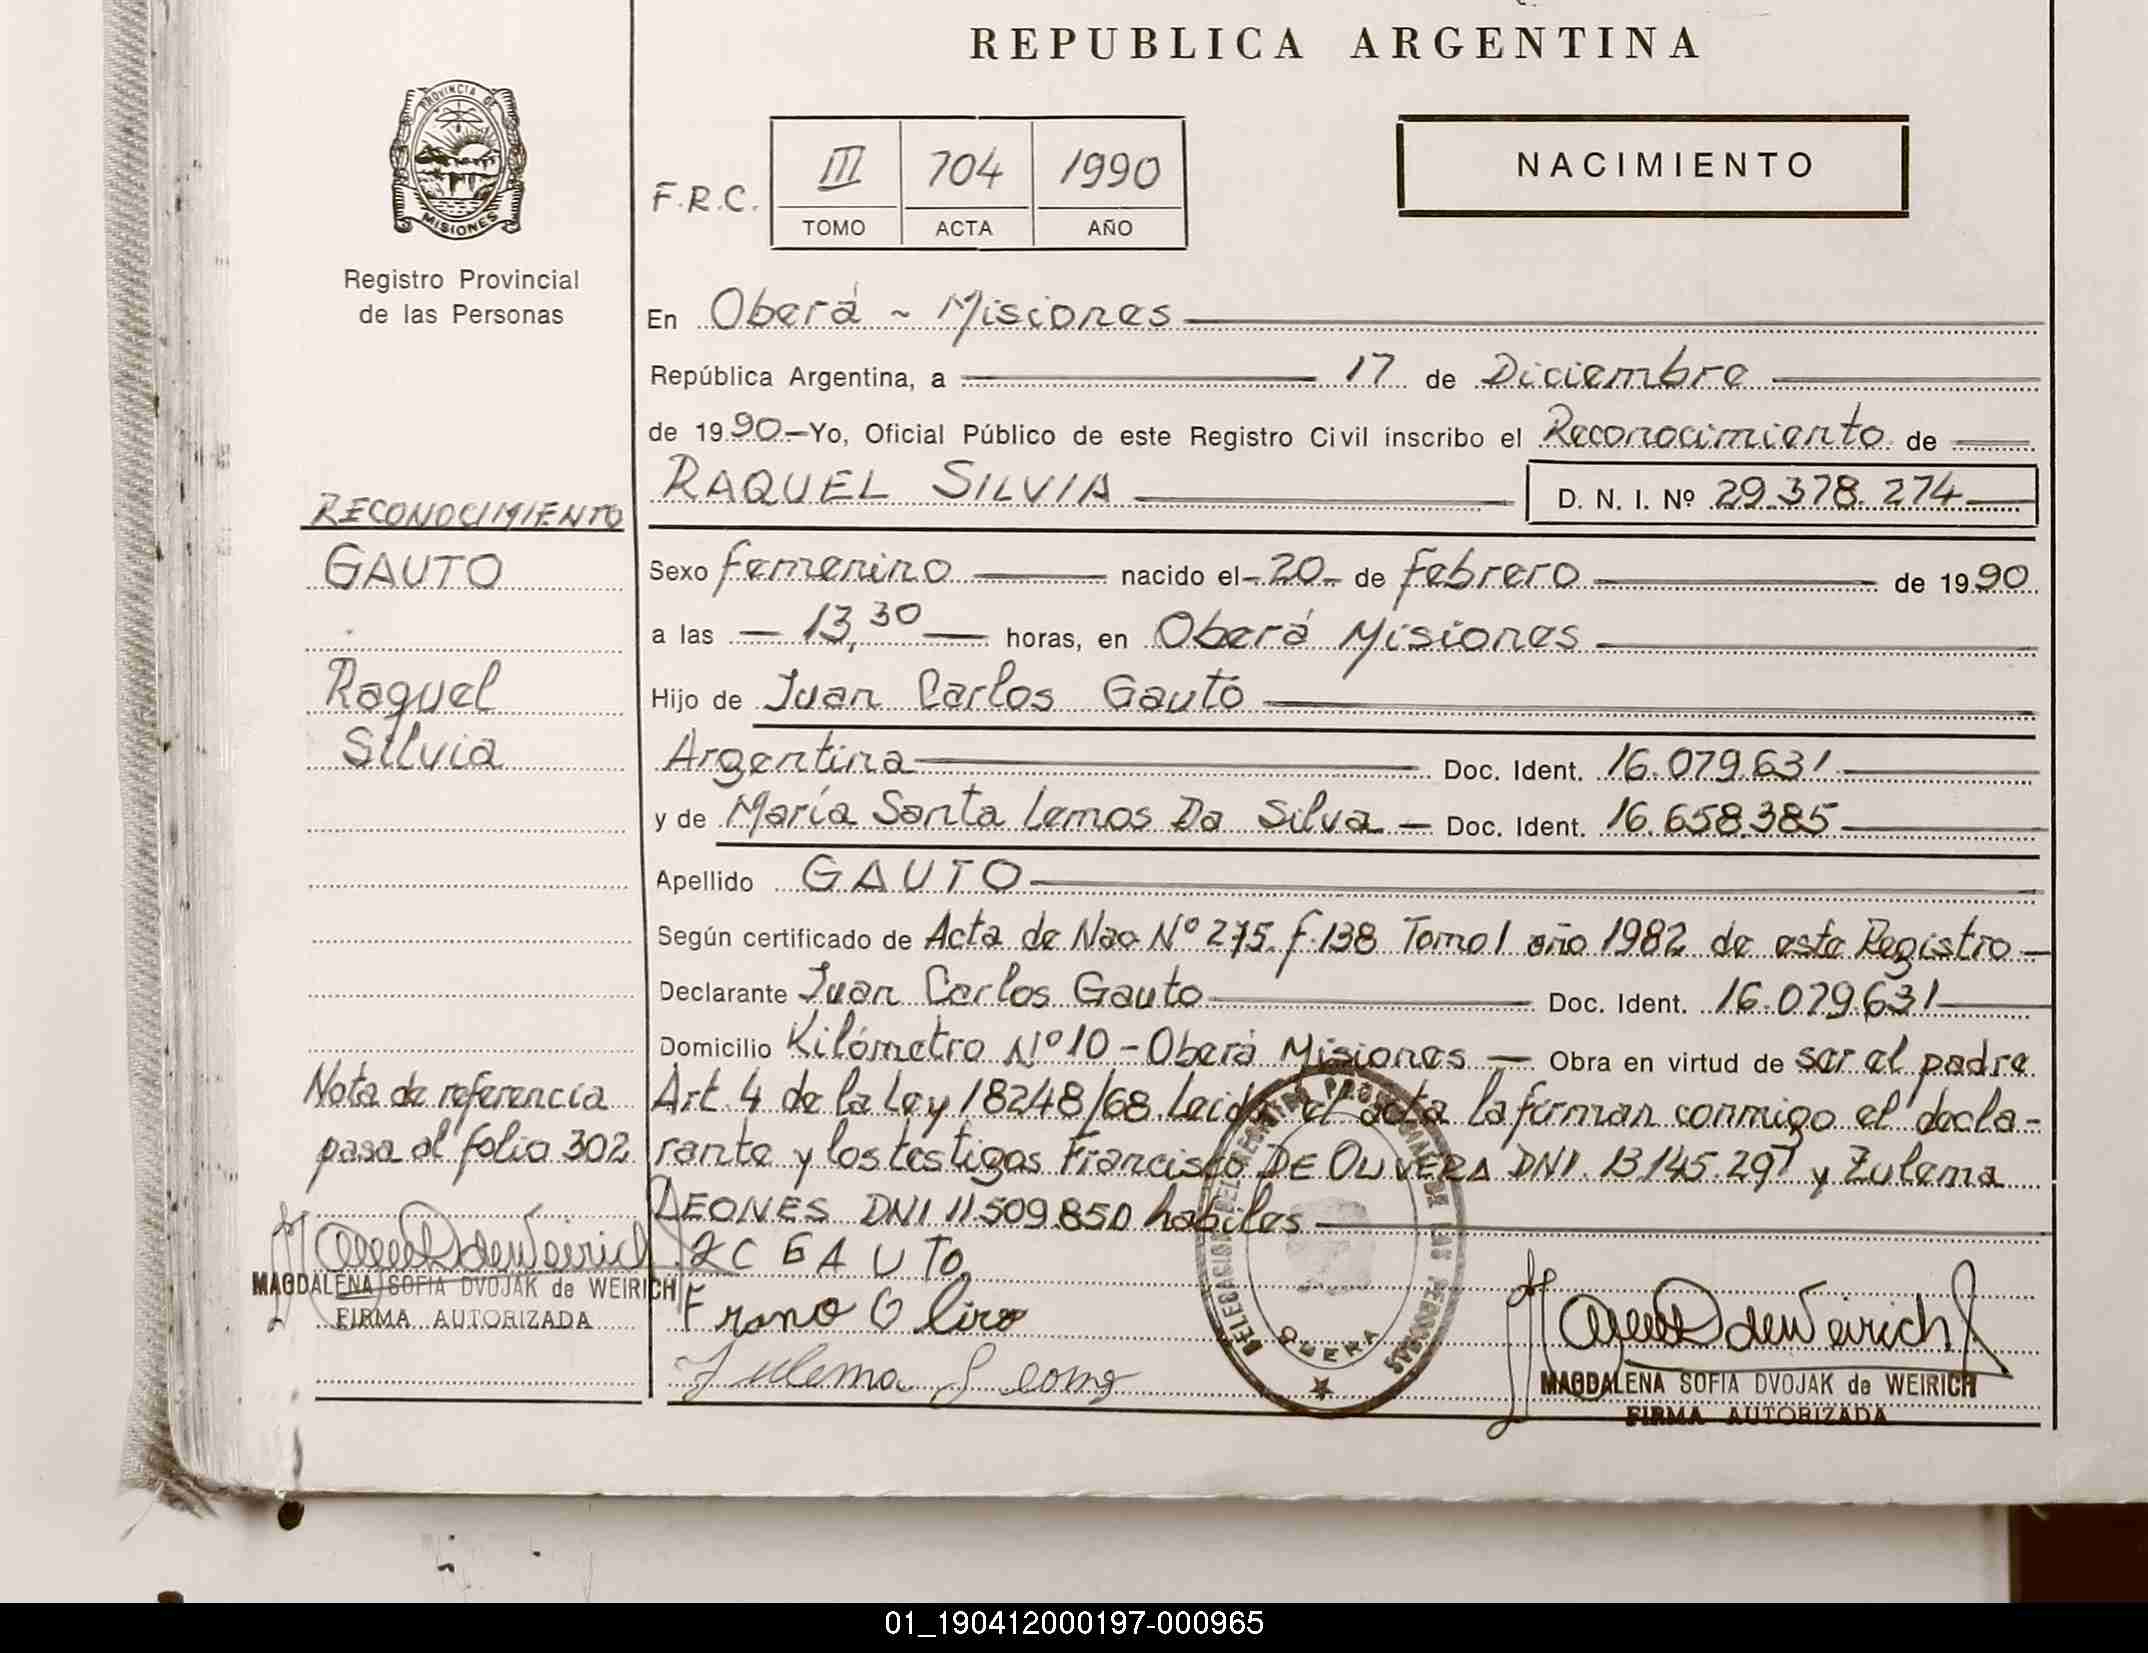 REPUBLICA ARGENTINA
PROVINCIA DE
MISIONES
Registro Provincial
de las Personas
F.R.C.
III 704 1990
TOMO ACTA AÑO
NACIMIENTO
En Oberá ~ Misiones
República Argentina, a 17 de Diciembre
de 1990.-Yo, Oficial Público de este Registro Civil inscribo el Reconocimiento de
RAQUEL SILVIA D. N. I. Nº 29.378.274
RECONOCIMIENTO
GAUTO
Raquel
Silvia
Sexo femenino nacido el -20- de febrero de 1990
a las 13,30 horas, en Oberá Misiones
Hijo de Juan Carlos Gauto
Argentina Doc. Ident. 16.079.631
y de María Santa Lemos Da Silva Doc. Ident. 16.658.385
Apellido GAUTO
Según certificado de Acta de Nac Nº 275. f.138 Tomo I año 1982 de este Registro
Declarante Juan Carlos Gauto Doc. Ident. 16.079.631
Domicilio Kilómetro Nº 10 - Oberá Misiones Obra en virtud de ser el padre
Art. 4 de la Ley 18248/68. Leida el acta la firman conmigo el decla-
rante y los testigos Francisco DE OLIVERA DNI. 13.145.297 y Zulema
LEONES DNI 11.509.850 habiles
Nota de referencia
pasa al folio 302
MAGDALENA SOFIA DVOJAK de WEIRICH
FIRMA AUTORIZADA
JC GAUTO
Zulema Leones
DELEGACION DEL REGISTRO PROVINCIAL DE LAS PERSONAS
OBERA
MAGDALENA SOFIA DVOJAK de WEIRICH
FIRMA AUTORIZADA
01_190412000197-000965